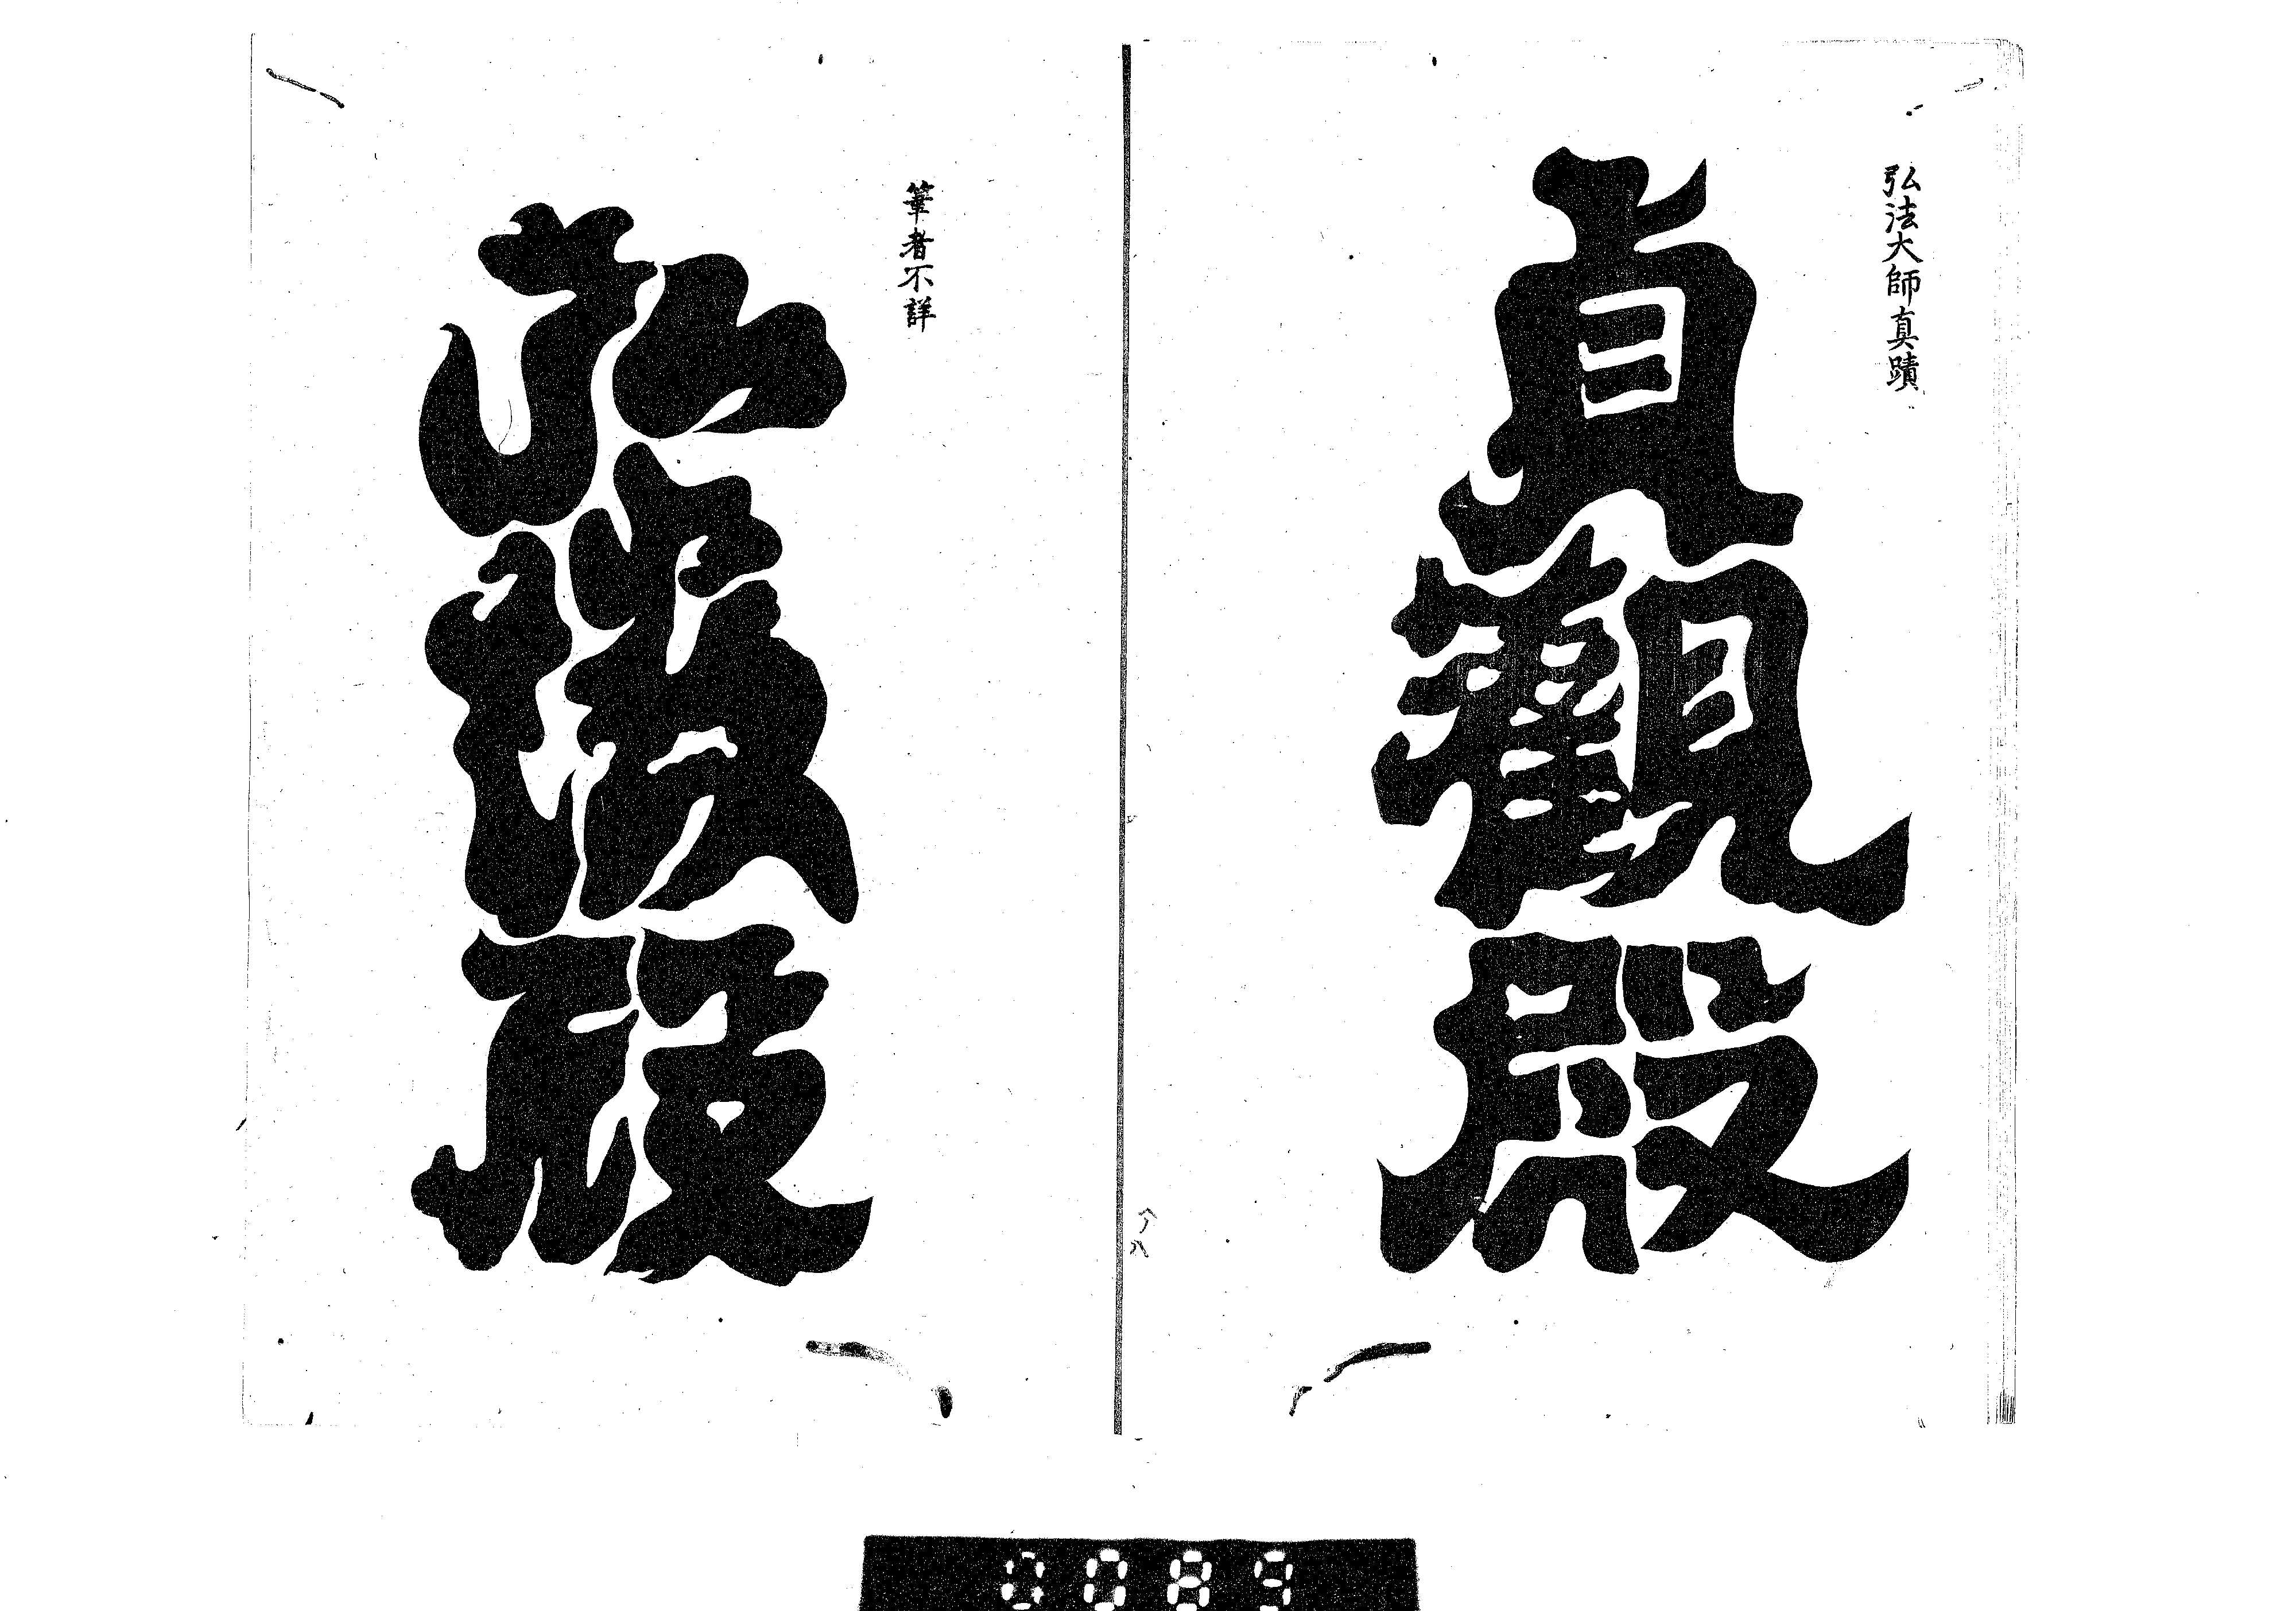 弘法大師真蹟
貞觀殿
筆者不詳
弘徽殿
0089